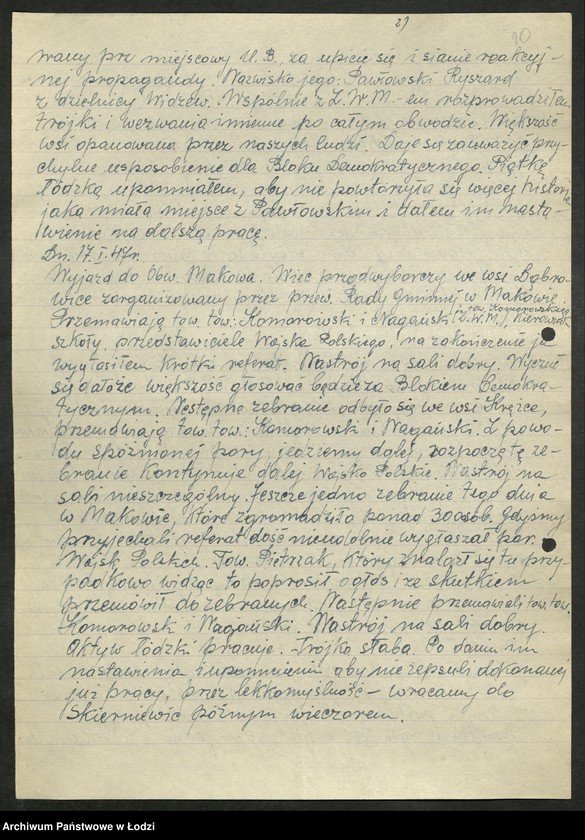 2)
10
wany prz miejscowy U.B., za upicie się i sianie reakcyj-
nej propagandy. Nazwisko jego: Pawłowski Ryszard
z dzielnicy Widzew. Wspólnie z Z.W.M.-em rozprowadziłem
trójki i wezwania imienne po całym obwodzie. Większość
wsi opanowana przez naszych ludzi. Daje się zauważyć przy-
chylne usposobienie dla Bloku Demokratycznego. Piątkę
łódzką upomniałem, aby nie powtórzyła się więcej historia
jaka miała miejsce z Pawłowskim i dałem im nasta-
wienie na dalszą pracę.
Dn. 17.I.47r.
Wyjazd do Obw. Makowa. Wiec przedwyborczy we wsi Dąbro-
wice zorganizowany przez przew. Rady Gminnej w Makowie.
Przemawiają tow. tow.: Komorowski i Nagański (Z.W.M.), kierownik
tow. Komorowskiego
szkoły, przedstawiciele Wojska Polskiego, na zakończenie ja
wygłosiłem krótki referat. Nastrój na sali dobry. Wyczuć
się dało że większość głosować będzie za Blokiem Demokra-
tycznym. Następne zebranie odbyło się we wsi Krężce,
przemawiają tow. tow.: Komorowski i Nagański. Z powo-
du spóźnionej pory, jedziemy dalej, rozpoczętę ze-
branie kontynuje dalej Wojsko Polskie. Nastrój na
sali nieszczególny. Jeszcze jedno zebranie tego dnia
w Makowie, które zgromadziło ponad 300 osób. Gdyśmy
przyjechali referat dość nieudolnie wygłaszał por.
Wojsk Polskich. Tow. Pietrzak, który znalazł się tu przy-
padkowo widząc to poprosił o głos i ze skutkiem
przemówił do zebranych. Następnie przemawiali tow. tow.
Komorowski i Nagański. Nastrój na sali dobry.
Aktyw łódzki pracuje. Trójka słaba. Po daniu im
nastawienia i upomnieniu aby nie zepsuli dokonanej
już pracy, przez lekkomyślność – wracamy do
Skierniewic późnym wieczorem.
Archiwum Państwowe w Łodzi